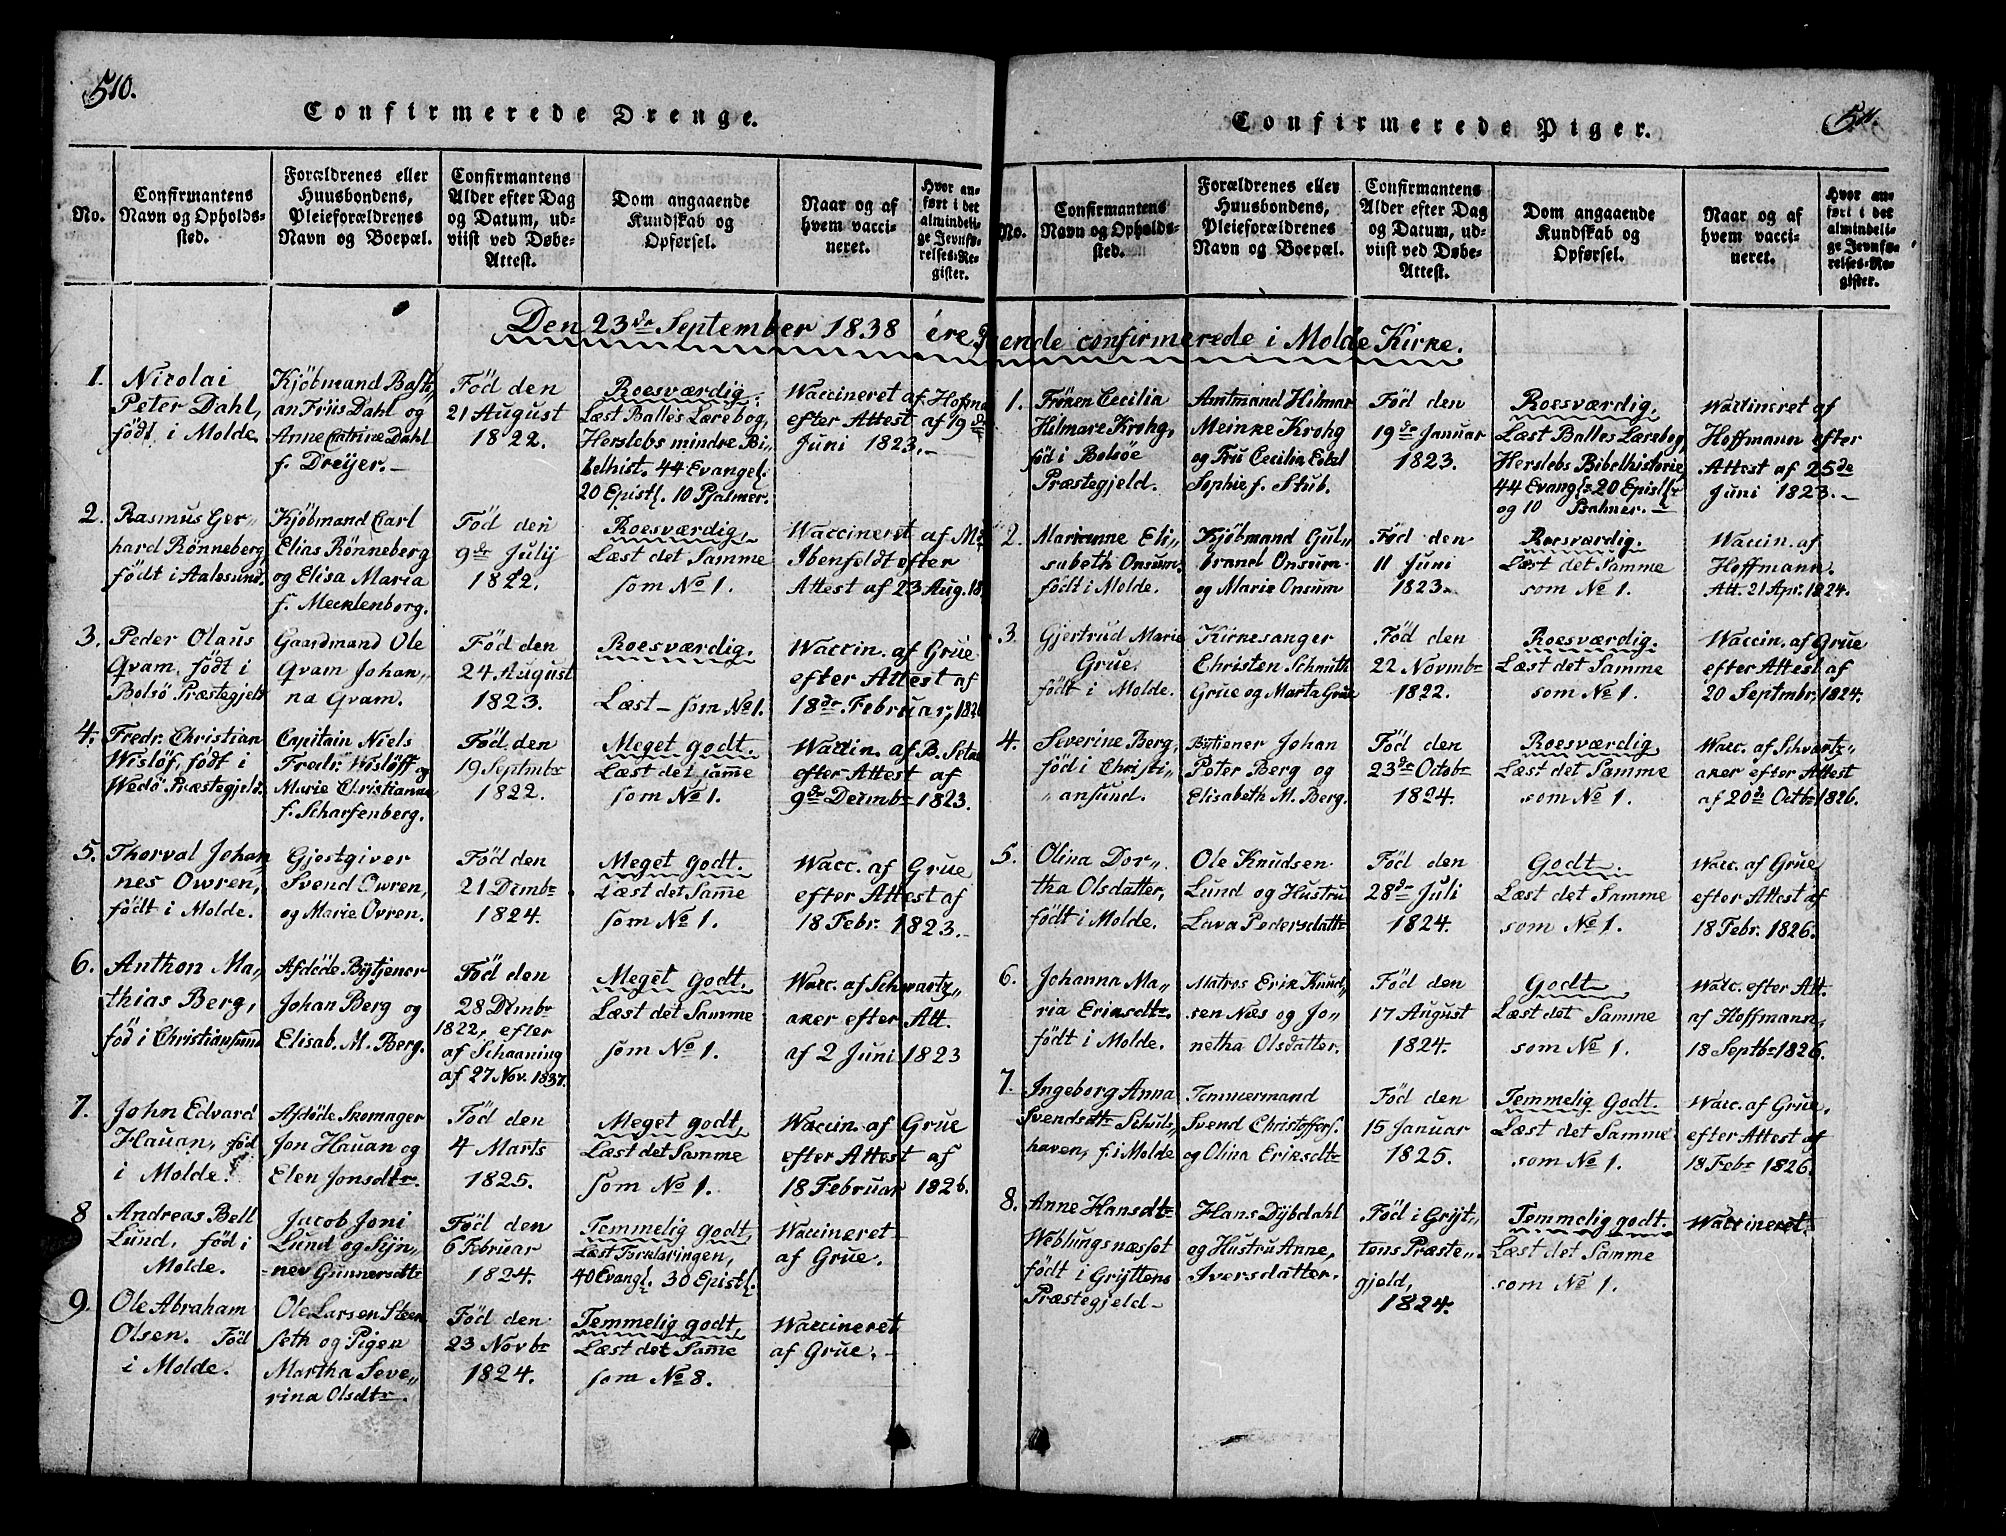 510.
Confirmerede Drenge.
No.
Confirmantens
Navn og Opholds-
sted.
Forældrenes eller
Huusbondens,
Pleieforældrenes
Navn og Boepæl.
Confirmantens
Alder efter Dag
og Datum, ud-
viist ved Døbe-
Attest.
Dom angaaende
Kundskab og
Opførsel.
Naar og af
hvem vacci-
neret.
Hvor an-
ført i det
almindeli-
ge Jevnfø-
relses-Re-
gister.
Den 23de September 1838 ere
1.
Nicolai
Peter Dahl,
født i Molde.
Kjöbmand Basti
an Friis Dahl og
Anne Catrine Dahl
f. Dreyer.
Fød den
21 August
1822.
Roesværdig.
Læst Balles Lærebog,
Herslebs mindre Bi-
belhist. 44 Evangel.
20 Epistl. 10 Psalmer.
Waccineret af Hofm
efter Attest af 19de
Juni 1823.
2.
Rasmus Ger-
hard Rönneberg
födt i Aalesund.
Kjöbmand Carl
Elias Rönneberg
og Elisa Maria
f. Mecklenborg.
Fød den
9de Julij
1822.
Roesværdig.
Læst det Samme
som No 1.
Waccineret af
Ibenfeldt efter
Attest af 23 Aug. 18
3.
Peder Olaus
Qvam, födt i
Bolsö Præstegjeld
Gaardmand Ole
Qvam Johan,,
na Qvam.
Fød den
24 August
1823.
Roesværdig.
Læst - som No 1.
Waccin. af Grue
efter Attest af
18de Februar, 182
4.
Fredr. Christian
Wislöf, födt i
Wedö Præstegjeld.
Capitain Niels
Fredr. Wislöff og
Marie Christianne
f. Scharfenberg.
Fød den
19 Septmbr
1822.
Meget godt.
Læst det samme
som No 1.
Waccin. af
efter Attest af
9de Decmbr 1823.
5.
Thorval Johan
nes Owren,
födt i Molde.
Gjestgiver
Svend Owren,
og Marie Ovren.
Fød den
21 Dcmbr
1824.
Meget godt.
Læst det Samme
som No 1.
Wacc. af Grue
efter Attest af
18 Febr. 1823.
6.
Anthon Ma,,
thias Berg,
föd i Christiansund
Afdöde Bytjener
Johan Berg og
Elisab. M. Berg.
Fød den
28 Dcmbr
1822, efter
af Schaaning
af 27 Nov. 1837.
Meget godt.
Læst det Samme
som No 1.
Wacc. af Schwartz,,
aker efter Att.
af 2 Juni 1823
7.
John Edvard
Hauan, föd
i Molde.
Afdöde Skomager
Jon Hauan og
Elen Jonsdtr.
Fød den
4 Marts
1825.
Meget godt,
Læst det Samme
som No 1.
Waccin. af Grue
efter Attest af
18 Februar 1826.
8
Andreas Bell
Lund, föd i
Molde.
Jacob Joni
Lund og Syn,,
nev Gunnersdtr
Fød den
6 Februar
1824.
Temmelig godt,
Læst Forklaringen,
40 Evangl. 30 Epistl.
Waccineret
af Grue.
9.
Ole Abraham
Olsen. Föd
i Molde.
Ole Larsen Steen
seth og Pigen
Martha Seve,,
rina Olsdtr.
Fød den
23 Novbr
1824.
Temmelig godt
Læst det Samme
som No 8.
Waccineret
af Grue.
Confirmerede Piger.
511.
No.
Confirmantens
Navn og Opholds-
sted.
Forældrenes eller
Huusbondens,
Pleieforældrenes
Navn og Boepæl.
Confirmantens
Alder efter Dag
og Datum, ud-
viist ved Døbe-
Attest.
Dom angaaende
Kundskab og
Opførsel.
Naar og af
hvem vacci-
neret.
Hvor an-
ført i det
almindeli-
ge Jevnfø-
relses-Re-
gister.
confirmerede i Molde Kirke.
1.
Fröken Cecilia
Hilmare Krohg,
föd i Bolsöe
Præstegjeld.
Amtmand Hilmar
Meinke Krohg
og Fru Cecilia
Sophie f. Stub.
Fød den
19de Januar
1823.
Roesværdig.
Læst Balles Lærebog,
Herslebs Bibelhistorie
44 Evangl. 20 Epistl.
og 10 Psalmer.
Waccineret af
Hoffmann efter
Attest af 25de
Juni 1823.
2.
Marianne Eli,,
sabeth Onsum.
födt i Molde.
Kjöbmand Gul,,
brand Onsum
og Marie Onsum
Fød den
11 Juni
1823.
Roesværdig.
Læst det Samme
som No 1.
Waccin. af
Hoffmann.
Att. 21 Apr. 1824.
3.
Gjertrud Marie
Grue.
födt i Molde.
Kirkesanger
Christen Schmith
Grue og Marta Grue
Fød den
22 Novmbr
1822.
Roesværdig.
Læst det Samme
som No 1.
Waccin. af Grue
efter Attest af
20 Septmbr. 1824.
4.
Severine Berg,
föd i Christi,,
,,ansund.
Bytjener Johan
Peter Berg og
Elisabeth M. Berg.
Fød den
23de Octobr
1824.
Roesværdig
Læst det Samme
som No 1.
Wacc. af Schvartz,,
aker efter Attest
af 20de Octbr 1826.
5.
Olina Dor,,
tha Olsdatter,
födt i Molde.
Ole Knudsen
Lund og Hustru
Lava Pedersdattr
Fød den
28de Juli
1824.
Godt.
Læst det Samme
som No 1.
Wacc. af Grue
efter Attest af
18 Febr. 1826.
6.
Johanna Ma,,
ria Eriksdtr.
födt i Molde.
Matros Erik Knud,,
sen Næs og Jo,,
netha Olsdatter.
Fød den
17 August
1824.
Godt
Læst det Samme
som No 1.
Wacc. efter Att.
af Hoffmann,
18 Septbr 1826.
7.
Ingeborg Anna
Svendsdtr Schuls,,
haven, f. i Molde
Temmermand
Svend Christoffers.
og Olina Eriksdtr
Fød den
15 Januar
1825.
Temmelig Godt.
Læst det Samme
som No 1.
Wacc. af Grue.
efter Attest af
18 Febr 1826.
8.
Anne Hansdtr
Weblungsnæsset
födt i Gryttens
Præstegjeld
Hans Dybdahl
og Hustru Anne,
Iversdatter.
Fød i Gryt,,
tens Præste,,
gjeld,
1824.
Temmelig godt.
Læst det Samme
som No 1.
Waccineret